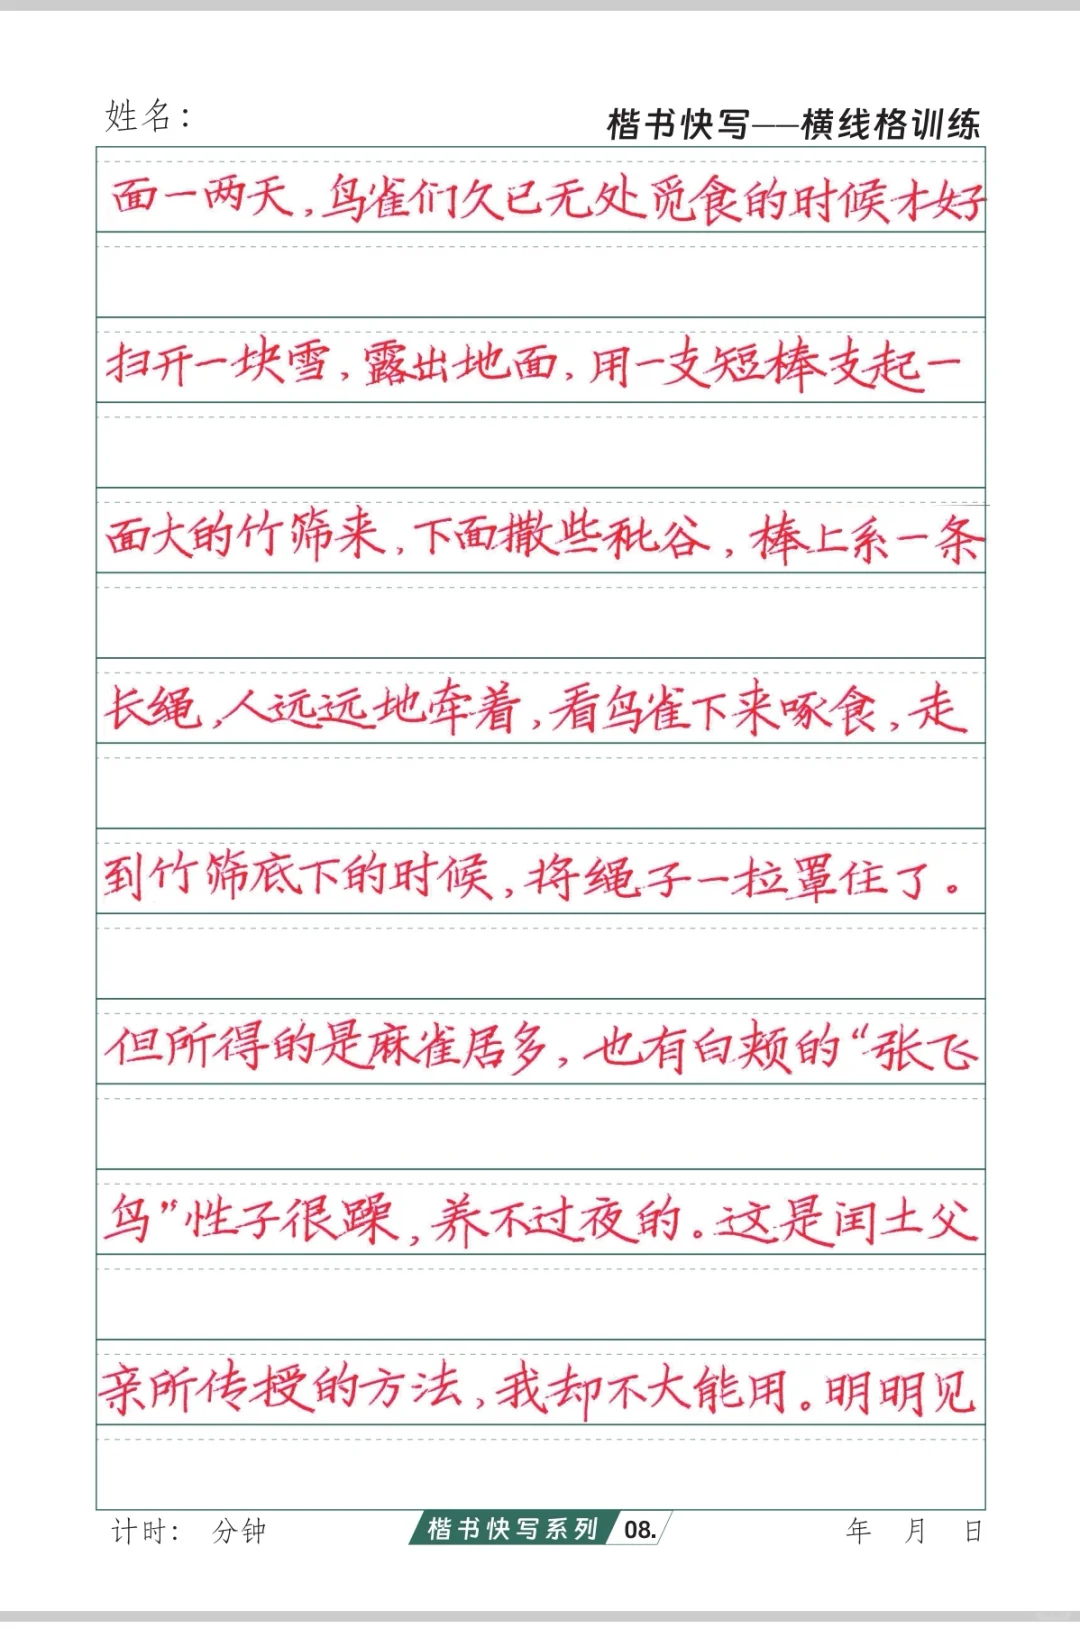 姓名：
楷书快写——横线格训练
面一两天，鸟雀们久已无处觅食的时候才好
扫开一块雪，露出地面，用一支短棒支起一
面大的竹筛来，下面撒些秕谷，棒上系一条
长绳，人远远地牵着，看鸟雀下来啄食，走
到竹筛底下的时候，将绳子一拉罩住了。
但所得的是麻雀居多，也有白颊的“张飞
鸟”性子很躁，养不过夜的。这是闰土父
亲所传授的方法，我却不大能用。明明见
计时： 分钟
楷书快写系列 08.
年 月 日